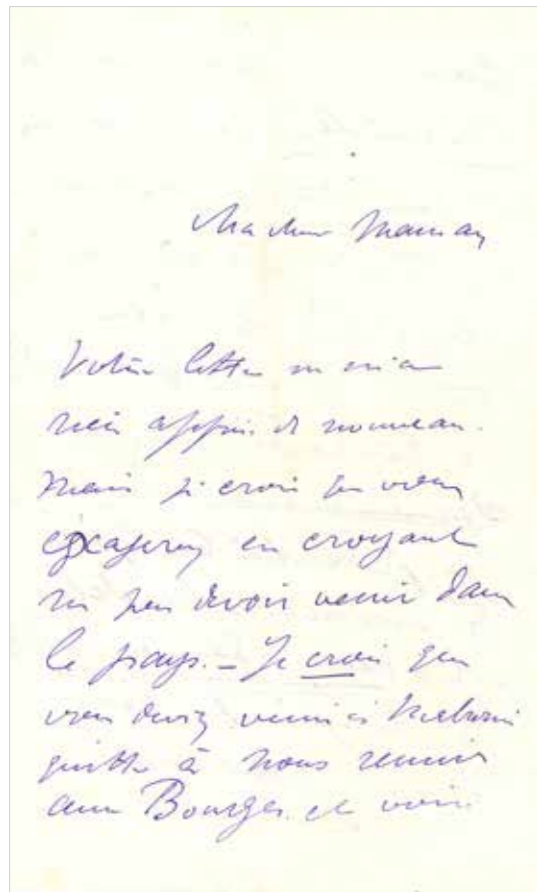 Ma chère Maman
Votre lettre ne m'a
rien appris de nouveau.
Mais je crois que vous
exagerez en croyant
ne pas devoir venir dans
le pays. – Je crois que
vous devez venir ici
quitte à nous réunir
aux Bourges et voir